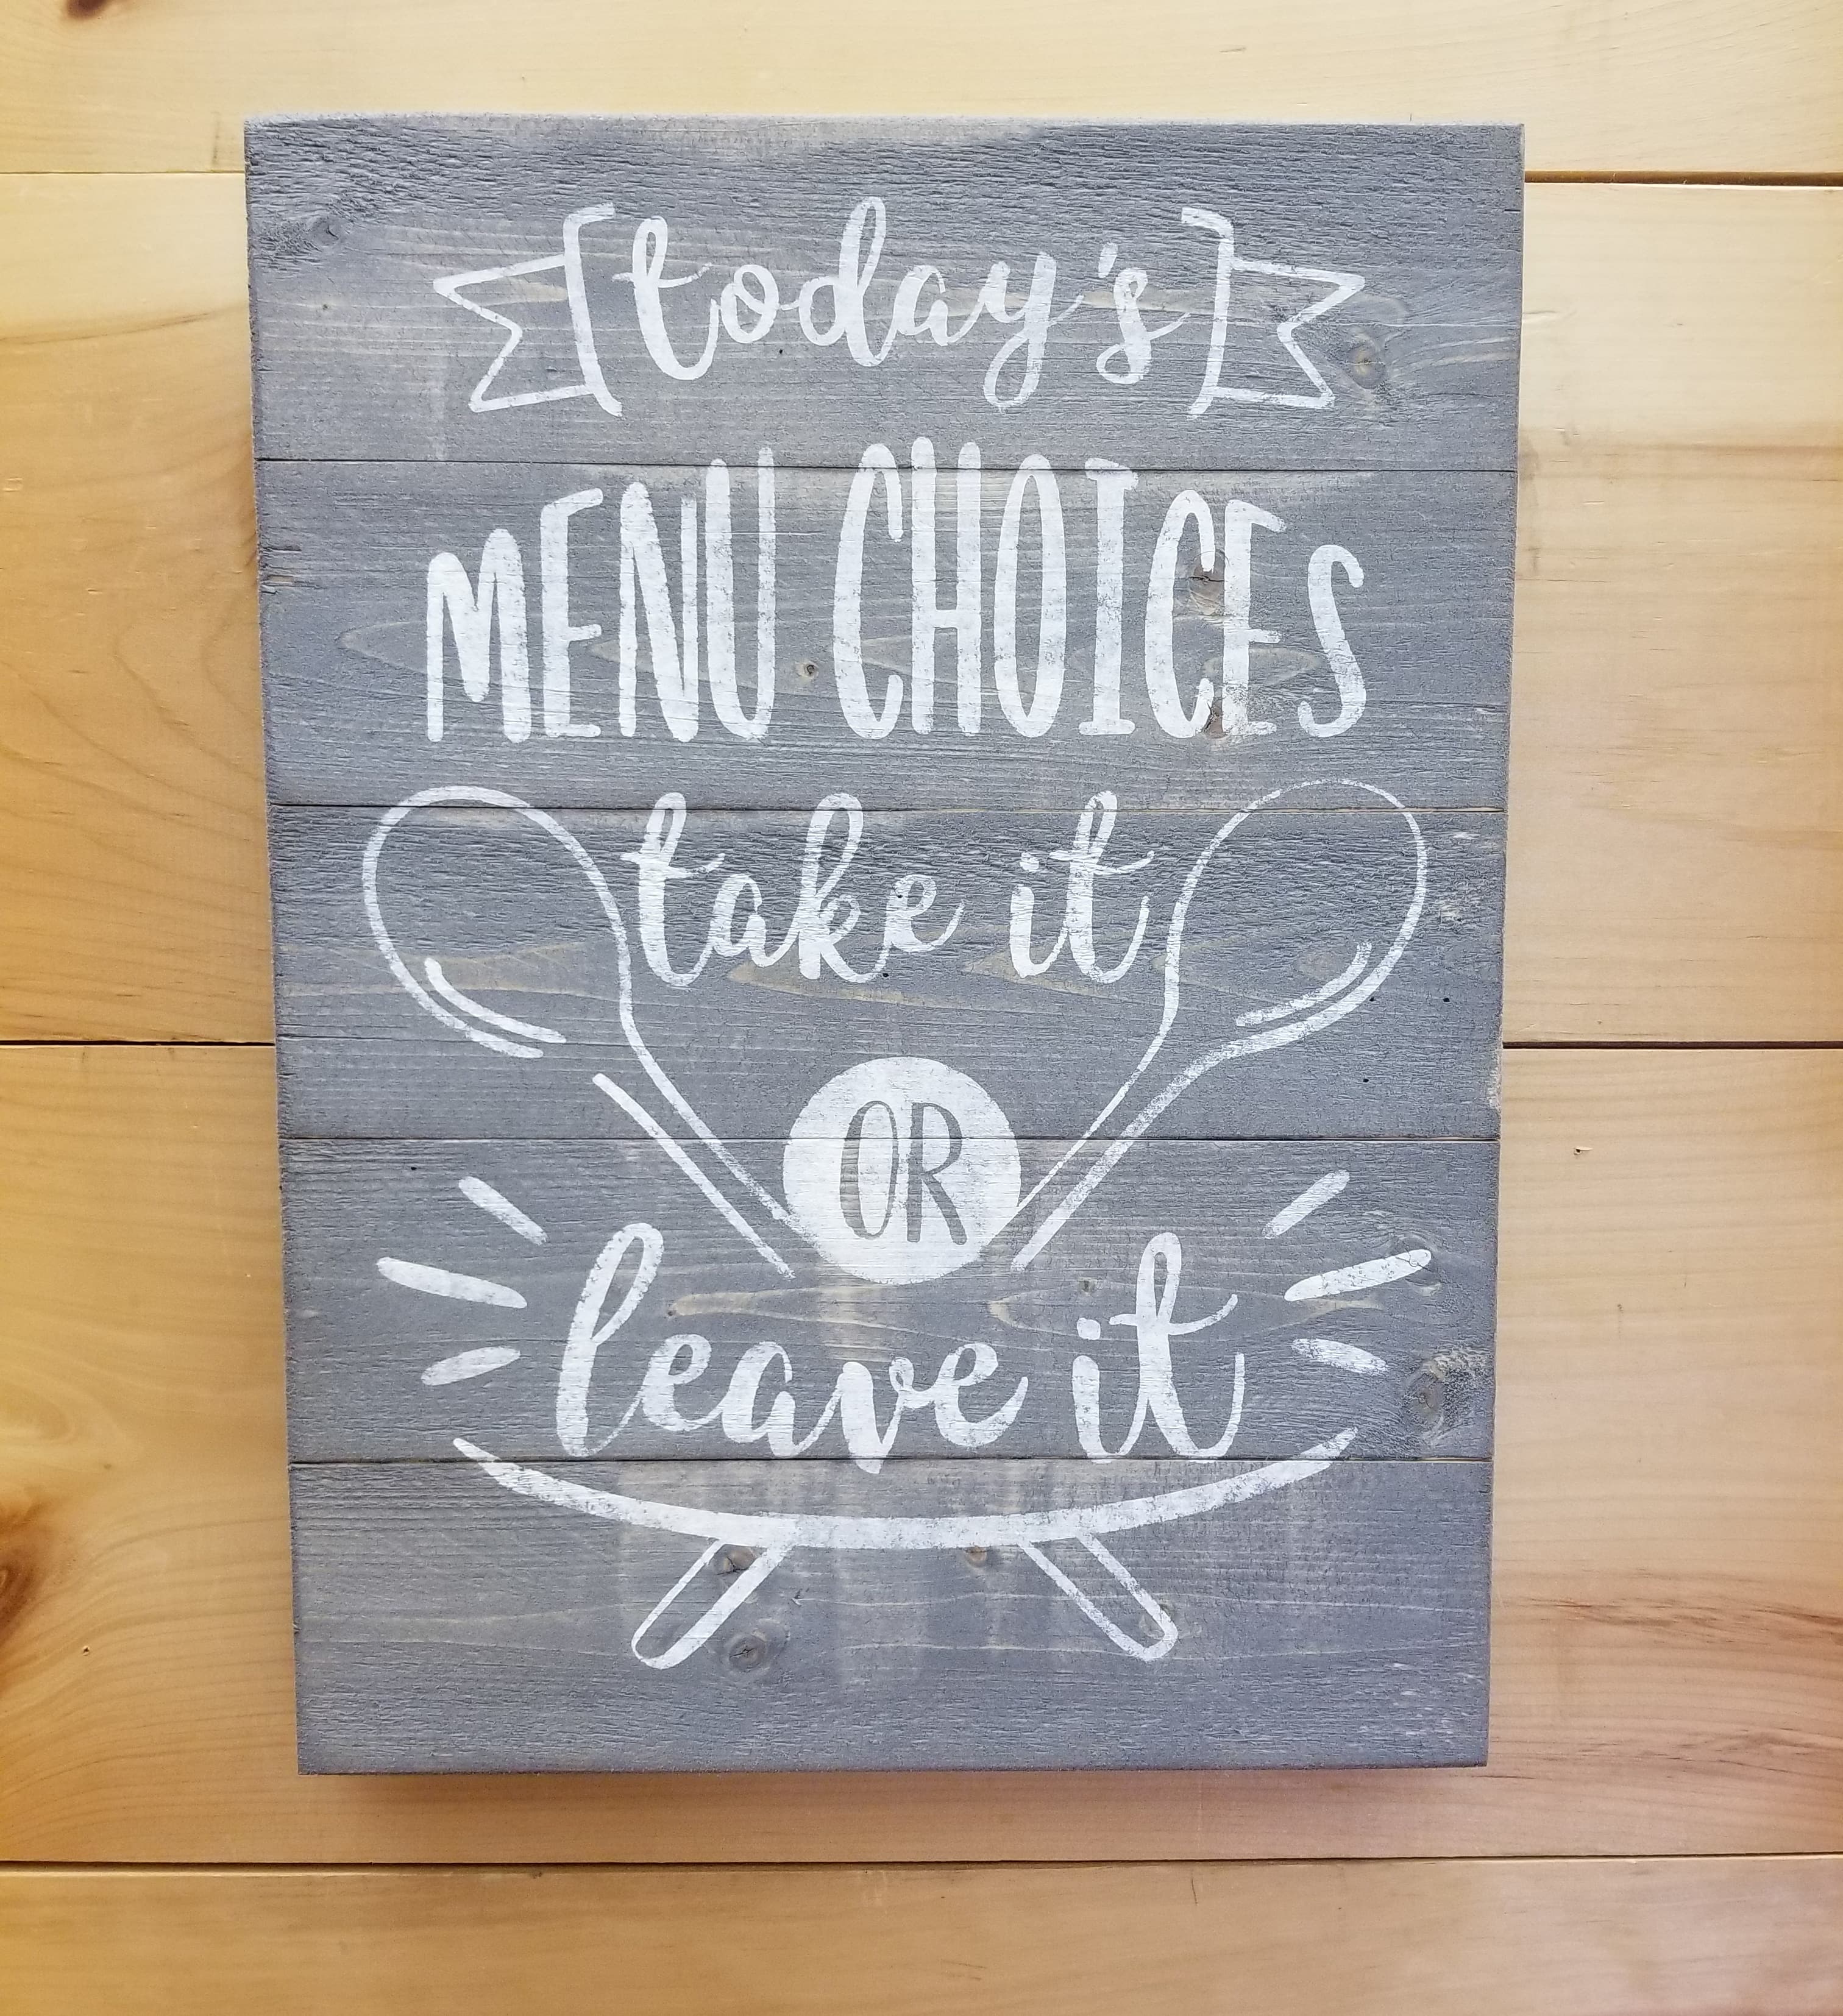 today's
MENU CHOICES
take it
OR
leave it